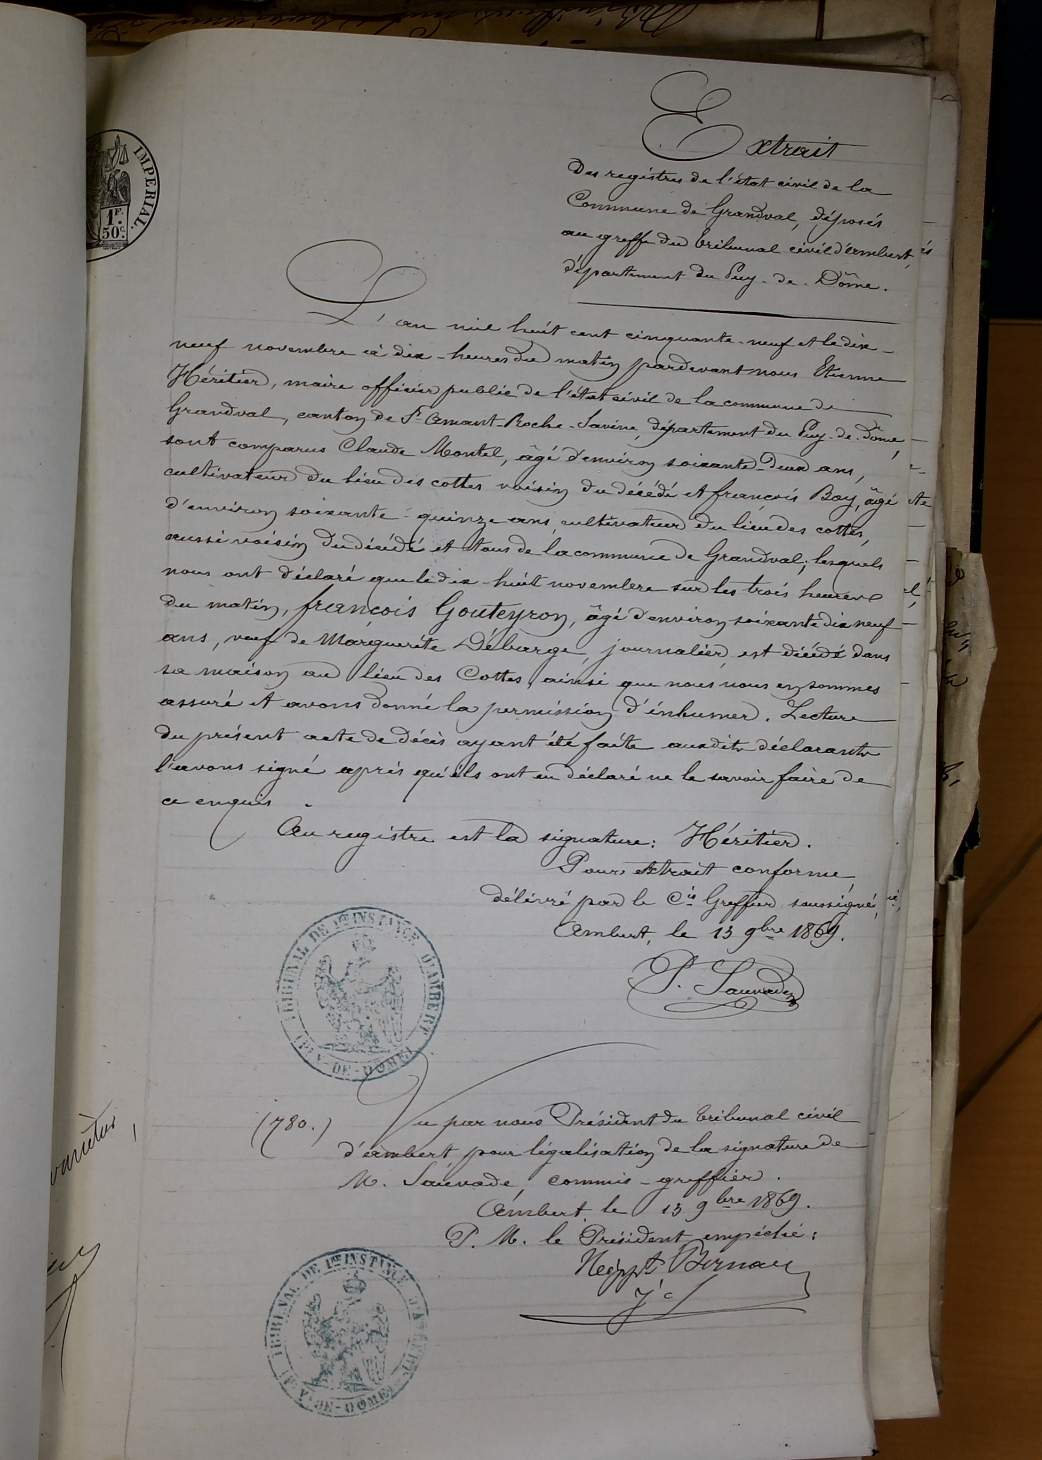 IMPERIAL.
1F.
50c.
Extrait
Des registres de l'état civil de la
Commune de Grandval, déposés
au greffe du tribunal civil d'ambert,
département du Puy-de-Dôme.
L'an mil huit cent cinquante-neuf et le dix-
neuf novembre à dix-heures du matin pardevant nous Etienne
Héritier, maire officier public de l'état civil de la commune de
Grandval, canton de St amant-Roche-Savine, département du Puy-de-Dôme,
sont comparus Claude Montel, âgé d'environ soixante-Deux ans,
cultivateur du lieu des cottes voisin du décédé et françois Boy, âgé
d'environ soixante-quinze ans, cultivateur du lieu des cottes,
aussi voisin du décédé et tous de la commune de Grandval; lesquels
nous ont déclaré que le dix-huit novembre sur les trois heures
du matin, françois Gouteyron, âgé d'environ soixante dix neuf
ans, veuf de Marguerite Débarge, journalier, est décédé dans
sa maison au lieu des Cottes, ainsi que nous nous en sommes
assuré et avons donné la permission d'inhumer. Lecture
du présent acte de décès ayant été faite auxdits déclarants
l'avons signé après qu'ils ont eu déclaré ne le savoir faire de
ce enquis.
Au registre est la signature: Héritier.
Pour extrait conforme
délivré par le Cis Greffier soussigné,
Ambert, le 13 9bre 1869.
P. Sauvade
TRIBUNAL DE 1RE INSTANCE D'AMBERT
(PUY-DE-DÔME)
(780.)
Vu par nous Président du tribunal civil
d'ambert pour légalisation de la signature de
M. Sauvade, commis-greffier.
Ambert, le 13 9bre 1869.
P. M. le Président empêché:
TRIBUNAL DE 1RE INSTANCE D'AMBERT
(PUY-DE-DÔME)